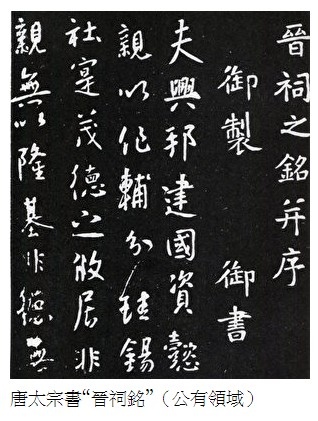 晉祠之銘并序
御製 御書
夫興邦建國資懿
親以作輔分珪錫
社寔茂德之攸居非
親無以隆基非德無
唐太宗書“晉祠銘”（公有領域）